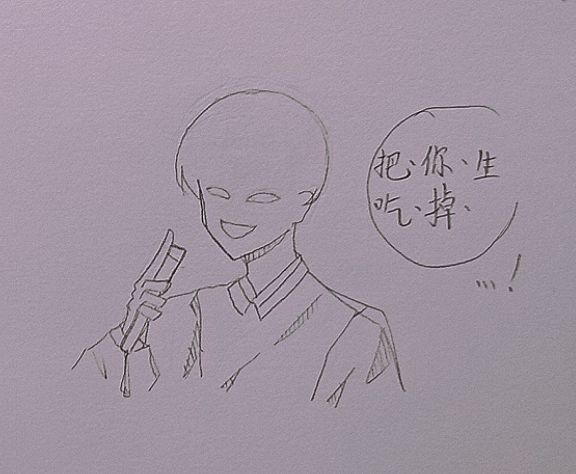 把、你、生
吃、掉、
...！